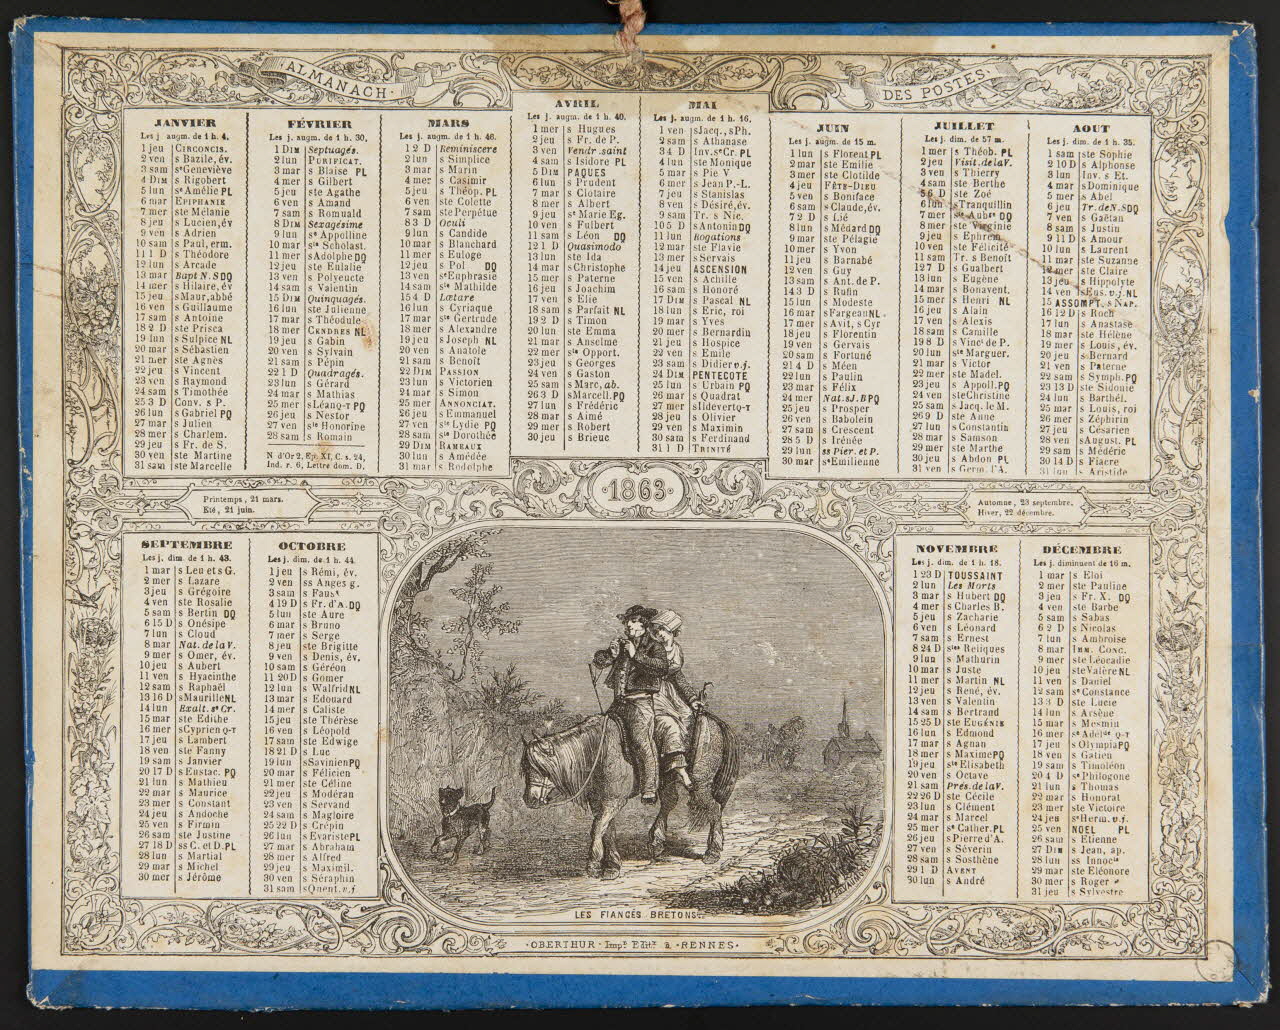 ALMANACH
DES POSTES.
JANVIER
Les j. augm. de 1 h. 4.
1 jeu CIRCONCIS.
2 ven s Bazile, év.
3 sam ste Geneviève
4 DIM s Rigobert
5 lun ste Amélie PL
6 mar EPIPHANIE
7 mer ste Mélanie
8 jeu s Lucien, év
9 ven s Adrien
10 sam s Paul, erm.
11 1 D s Théodore
12 lun s Arcade
13 mar Bapt N. S DQ
14 mer s Hilaire, év
15 jeu s Maur, abbé
16 ven s Guillaume
17 sam s Antoine
18 2 D ste Prisca
19 lun s Sulpice NL
20 mar s Sébastien
21 mer ste Agnès
22 jeu s Vincent
23 ven s Raymond
24 sam s Timothée
25 3 D Conv. s P.
26 lun s Gabriel PQ
27 mar s Julien
28 mer s Charlem.
29 jeu s Fr. de S.
30 ven ste Martine
31 sam ste Marcelle
FÉVRIER
Les j. augm. de 1 h. 30.
1 DIM Septuagés.
2 lun PURIFICAT.
3 mar s Blaise PL
4 mer s Gilbert
5 jeu ste Agathe
6 ven s Amand
7 sam s Romuald
8 DIM Sexagésime
9 lun ste Appolline
10 mar ste Scholast.
11 mer s Adolphe DQ
12 jeu ste Eulalie
13 ven s Polyeucte
14 sam s Valentin
15 DIM Quinquagés.
16 lun ste Julienne
17 mar s Théodule
18 mer CENDRES NL
19 jeu s Gabin
20 ven s Sylvain
21 sam s Pépin
22 1 D Quadragés.
23 lun s Gérard
24 mar s Mathias
25 mer s Léanq-T PQ
26 jeu s Nestor
27 ven ste Honorine
28 sam s Romain
N d'Or 2, Ep. XI, C. s. 24,
Ind. r. 6, Lettre dom. D.
MARS
Les j. augm. de 1 h. 46.
1 2 D Reminiscere
2 lun s Simplice
3 mar s Marin
4 mer s Casimir
5 jeu s Théop. PL
6 ven ste Colette
7 sam ste Perpétue
8 3 D Oculi
9 lun s Candide
10 mar s Blanchard
11 mer s Euloge
12 jeu s Pol DQ
13 ven ste Euphrasie
14 sam ste Mathilde
15 4 D Lætare
16 lun s Cyriaque
17 mar ste Gertrude
18 mer s Alexandre
19 jeu s Joseph NL
20 ven s Anatole
21 sam s Benoît
22 DIM PASSION
23 lun s Victorien
24 mar s Simon
25 mer ANNONCIAT.
26 jeu s Emmanuel
27 ven ste Lydie PQ
28 sam ste Dorothée
29 DIM RAMEAUX
30 lun s Amédée
31 mar s Rodolphe
AVRIL
Les j. augm. de 1 h. 40.
1 mer s Hugues
2 jeu s Fr. de P.
3 ven Vendr saint
4 sam s Isidore PL
5 DIM PAQUES
6 lun s Prudent
7 mar s Clotaire
8 mer s Albert
9 jeu ste Marie Eg.
10 ven s Fulbert
11 sam s Léon DQ
12 1 D Quasimodo
13 lun ste Ida
14 mar s Christophe
15 mer s Paterne
16 jeu s Joachim
17 ven s Elie
18 sam s Parfait NL
19 2 D s Timon
20 lun ste Emma
21 mar s Anselme
22 mer ste Opport.
23 jeu s Georges
24 ven s Gaston
25 sam s Marc, ab.
26 3 D s Marcell. PQ
27 lun s Frédéric
28 mar s Aimé
29 mer s Robert
30 jeu s Brieuc
MAI
Les j. augm. de 1 h. 16.
1 ven s Jacq., s Ph.
2 sam s Athanase
3 4 D Inv. ste Cr. PL
4 lun ste Monique
5 mar s Pie V
6 mer s Jean P.-L.
7 jeu s Stanislas
8 ven s Désiré, év.
9 sam Tr. s Nic.
10 5 D s Antonin DQ
11 lun Rogations
12 mar ste Flavie
13 mer s Servais
14 jeu ASCENSION
15 ven s Achille
16 sam s Honoré
17 DIM s Pascal NL
18 lun s Eric, roi
19 mar s Yves
20 mer s Bernardin
21 jeu s Hospice
22 ven s Emile
23 sam s Didier v.j.
24 DIM PENTECOTE
25 lun s Urbain PQ
26 mar s Quadrat
27 mer s Ildevert Q-T
28 jeu s Olivier
29 ven s Maximin
30 sam s Ferdinand
31 1 D TRINITÉ
JUIN
Les j. augm. de 15 m.
1 lun s Florent PL
2 mar ste Emilie
3 mer ste Clotilde
4 jeu FÊTE-DIEU
5 ven s Boniface
6 sam s Claude, év.
7 2 D s Lié
8 lun s Médard DQ
9 mar ste Pélagie
10 mer s Yvon
11 jeu s Barnabé
12 ven s Guy
13 sam s Ant. de P.
14 3 D s Rufin
15 lun s Modeste
16 mar s Fargeau NL
17 mer s Avit, s Cyr
18 jeu s Florentin
19 ven s Gervais
20 sam s Fortuné
21 4 D s Méen
22 lun s Paulin
23 mar s Félix
24 mer Nat. s J. B PQ
25 jeu s Prosper
26 ven s Babolein
27 sam s Crescent
28 5 D s Irénée
29 lun ss Pier. et P.
30 mar ste Emilienne
JUILLET
Les j. dim. de 57 m.
1 mer s Théob. PL
2 jeu Visit. de la V.
3 ven s Thierry
4 sam ste Berthe
5 6 D ste Zoé
6 lun s Tranquillin
7 mar ste Aubie DQ
8 mer ste Virginie
9 jeu s Ephrem
10 ven ste Félicité
11 sam Tr. s Benoît
12 7 D s Gualbert
13 lun s Eugène
14 mar s Bonavent.
15 mer s Henri NL
16 jeu s Alain
17 ven s Alexis
18 sam s Camille
19 8 D s Vinct de P.
20 lun ste Marguer.
21 mar s Victor
22 mer ste Madel.
23 jeu s Apoll. PQ
24 ven ste Christine
25 sam s Jacq. le M.
26 9 D ste Anne
27 lun s Constantin
28 mar s Samson
29 mer ste Marthe
30 jeu s Abdon PL
31 ven s Germ. l'A.
AOUT
Les j. dim. de 1 h. 35.
1 sam ste Sophie
2 10 D s Alphonse
3 lun Inv. s Et.
4 mar s Dominique
5 mer s Abel
6 jeu Tr. de N. S DQ
7 ven s Gaëtan
8 sam s Justin
9 11 D s Amour
10 lun s Laurent
11 mar ste Suzanne
12 mer ste Claire
13 jeu s Hippolyte
14 ven s Eus. v.j. NL
15 ASSOMPT. s NAP.
16 12 D s Roch
17 lun s Anastase
18 mar ste Hélène
19 mer s Louis, év.
20 jeu s Bernard
21 ven s Paterne
22 sam s Symph. PQ
23 13 D ste Sidonie
24 lun s Barthél.
25 mar s Louis, roi
26 mer s Zéphirin
27 jeu s Césarien
28 ven s August. PL
29 sam s Médéric
30 14 D s Fiacre
31 lun s Aristide
1863
Printemps, 21 mars.
Eté, 21 juin.
Automne, 23 septembre.
Hiver, 22 décembre.
SEPTEMBRE
Les j. dim. de 1 h. 43.
1 mar s Leu et s G.
2 mer s Lazare
3 jeu s Grégoire
4 ven ste Rosalie
5 sam s Bertin DQ
6 15 D s Onésipe
7 lun s Cloud
8 mar Nat. de la V.
9 mer s Omer, év.
10 jeu s Aubert
11 ven s Hyacinthe
12 sam s Raphaël
13 16 D s Maurille NL
14 lun Exalt. ste Cr.
15 mar ste Edithe
16 mer s Cyprien Q-T
17 jeu s Lambert
18 ven ste Fanny
19 sam s Janvier
20 17 D s Eustac. PQ
21 lun s Mathieu
22 mar s Maurice
23 mer s Constant
24 jeu s Andoche
25 ven s Firmin
26 sam ste Justine
27 18 D ss C. et D. PL
28 lun s Martial
29 mar s Michel
30 mer s Jérôme
OCTOBRE
Les j. dim. de 1 h. 44.
1 jeu s Rémi, év.
2 ven ss Anges g.
3 sam s Faust
4 19 D s Fr. d'A. DQ
5 lun ste Aure
6 mar s Bruno
7 mer s Serge
8 jeu ste Brigitte
9 ven s Denis, év.
10 sam s Géréon
11 20 D s Gomer
12 lun s Walfrid NL
13 mar s Edouard
14 mer s Caliste
15 jeu ste Thérèse
16 ven s Léopold
17 sam ste Edwige
18 21 D s Luc
19 lun s Savinien PQ
20 mar s Félicien
21 mer ste Céline
22 jeu s Modéran
23 ven s Servand
24 sam s Magloire
25 22 D s Crépin
26 lun s Evariste PL
27 mar s Abraham
28 mer s Alfred
29 jeu s Maximil.
30 ven s Séraphin
31 sam s Quent. v.j
NOVEMBRE
Les j. dim. de 1 h. 18.
1 23 D TOUSSAINT
2 lun Les Morts
3 mar s Hubert DQ
4 mer s Charles B.
5 jeu s Zacharie
6 ven s Léonard
7 sam s Ernest
8 24 D stes Reliques
9 lun s Mathurin
10 mar s Juste
11 mer s Martin NL
12 jeu s René, év.
13 ven s Valentin
14 sam s Bertrand
15 25 D ste EUGÉNIE
16 lun s Edmond
17 mar s Agnan
18 mer s Maxime PQ
19 jeu ste Elisabeth
20 ven s Octave
21 sam Prés. de la V.
22 26 D ste Cécile
23 lun s Clément
24 mar s Marcel
25 mer ste Cather. PL
26 jeu s Pierre d'A.
27 ven s Séverin
28 sam s Sosthène
29 1 D AVENT
30 lun s André
DÉCEMBRE
Les j. diminuent de 16 m.
1 mar s Eloi
2 mer ste Pauline
3 jeu s Fr. X. DQ
4 ven ste Barbe
5 sam s Sabas
6 2 D s Nicolas
7 lun s Ambroise
8 mar IMM. CONC.
9 mer ste Léocadie
10 jeu ste Valère NL
11 ven s Daniel
12 sam ste Constance
13 3 D ste Lucie
14 lun s Arsène
15 mar s Mesmin
16 mer ste Adélde Q-T
17 jeu s Olympia PQ
18 ven s Gatien
19 sam s Timoléon
20 4 D ste Philogone
21 lun s Thomas
22 mar s Honorat
23 mer ste Victoire
24 jeu ste Herm. v.j.
25 ven NOEL PL
26 sam s Etienne
27 DIM s Jean, ap.
28 lun ss Innocts
29 mar ste Eléonore
30 mer s Roger
31 jeu s Sylvestre
LES FIANCÉS BRETONS
OBERTHUR Impr Editr à RENNES